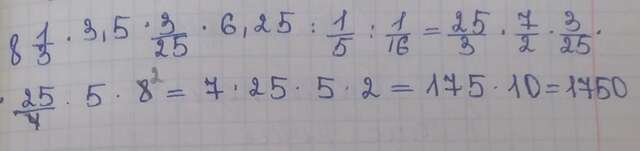 8 1/3 · 3,5 · 3/25 · 6,25 : 1/5 : 1/16 = 25/3 · 7/2 · 3/25 ·
· 25/4 · 5 · 8² = 7 · 25 · 5 · 2 = 175 · 10 = 1750